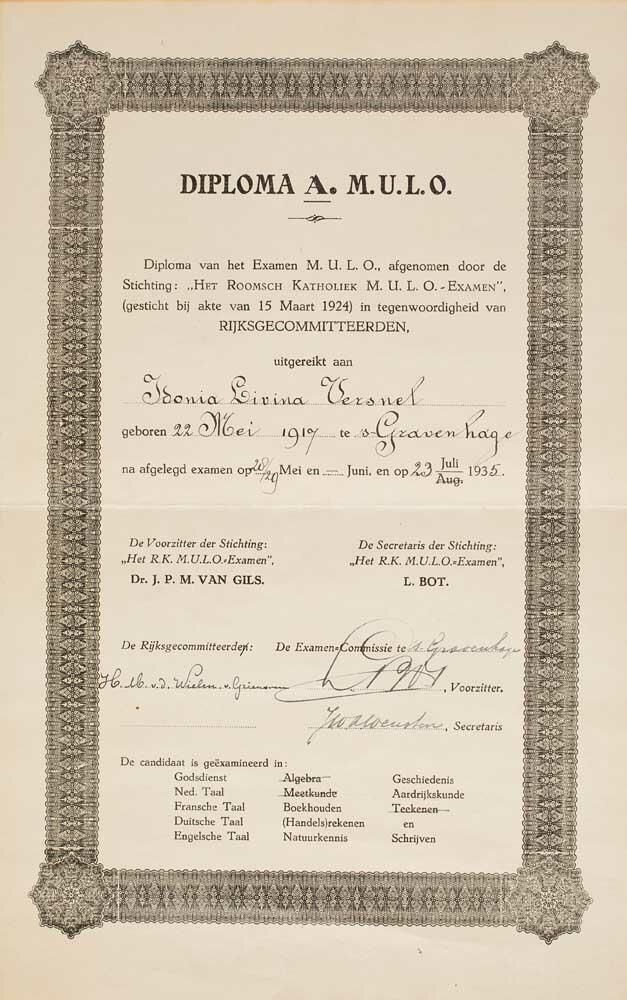 DIPLOMA A. M.U.L.O.
Diploma van het Examen M. U. L. O., afgenomen door de
Stichting: „HET ROOMSCH KATHOLIEK M. U. L. O.-EXAMEN”,
(gesticht bij akte van 15 Maart 1924) in tegenwoordigheid van
RIJKSGECOMMITTEERDEN,
uitgereikt aan
Isonia Livina Versnel
geboren 22 Mei 1917 te 's-Gravenhage
na afgelegd examen op 28/29 Mei en — Juni, en op 23 Juli/Aug. 1935.
De Voorzitter der Stichting: De Secretaris der Stichting:
„Het R.K. M.U.L.O.=Examen”, „Het R.K. M.U.L.O.=Examen”,
Dr. J. P. M. VAN GILS. L. BOT.
De Rijksgecommitteerden: De Examen=Commissie te 's Gravenhage
H. M. v.d. Wielen , Voorzitter.
, Secretaris
De candidaat is geëxamineerd in:
Godsdienst Algebra Geschiedenis
Ned. Taal Meetkunde Aardrijkskunde
Fransche Taal Boekhouden Teekenen
Duitsche Taal (Handels)rekenen en
Engelsche Taal Natuurkennis Schrijven